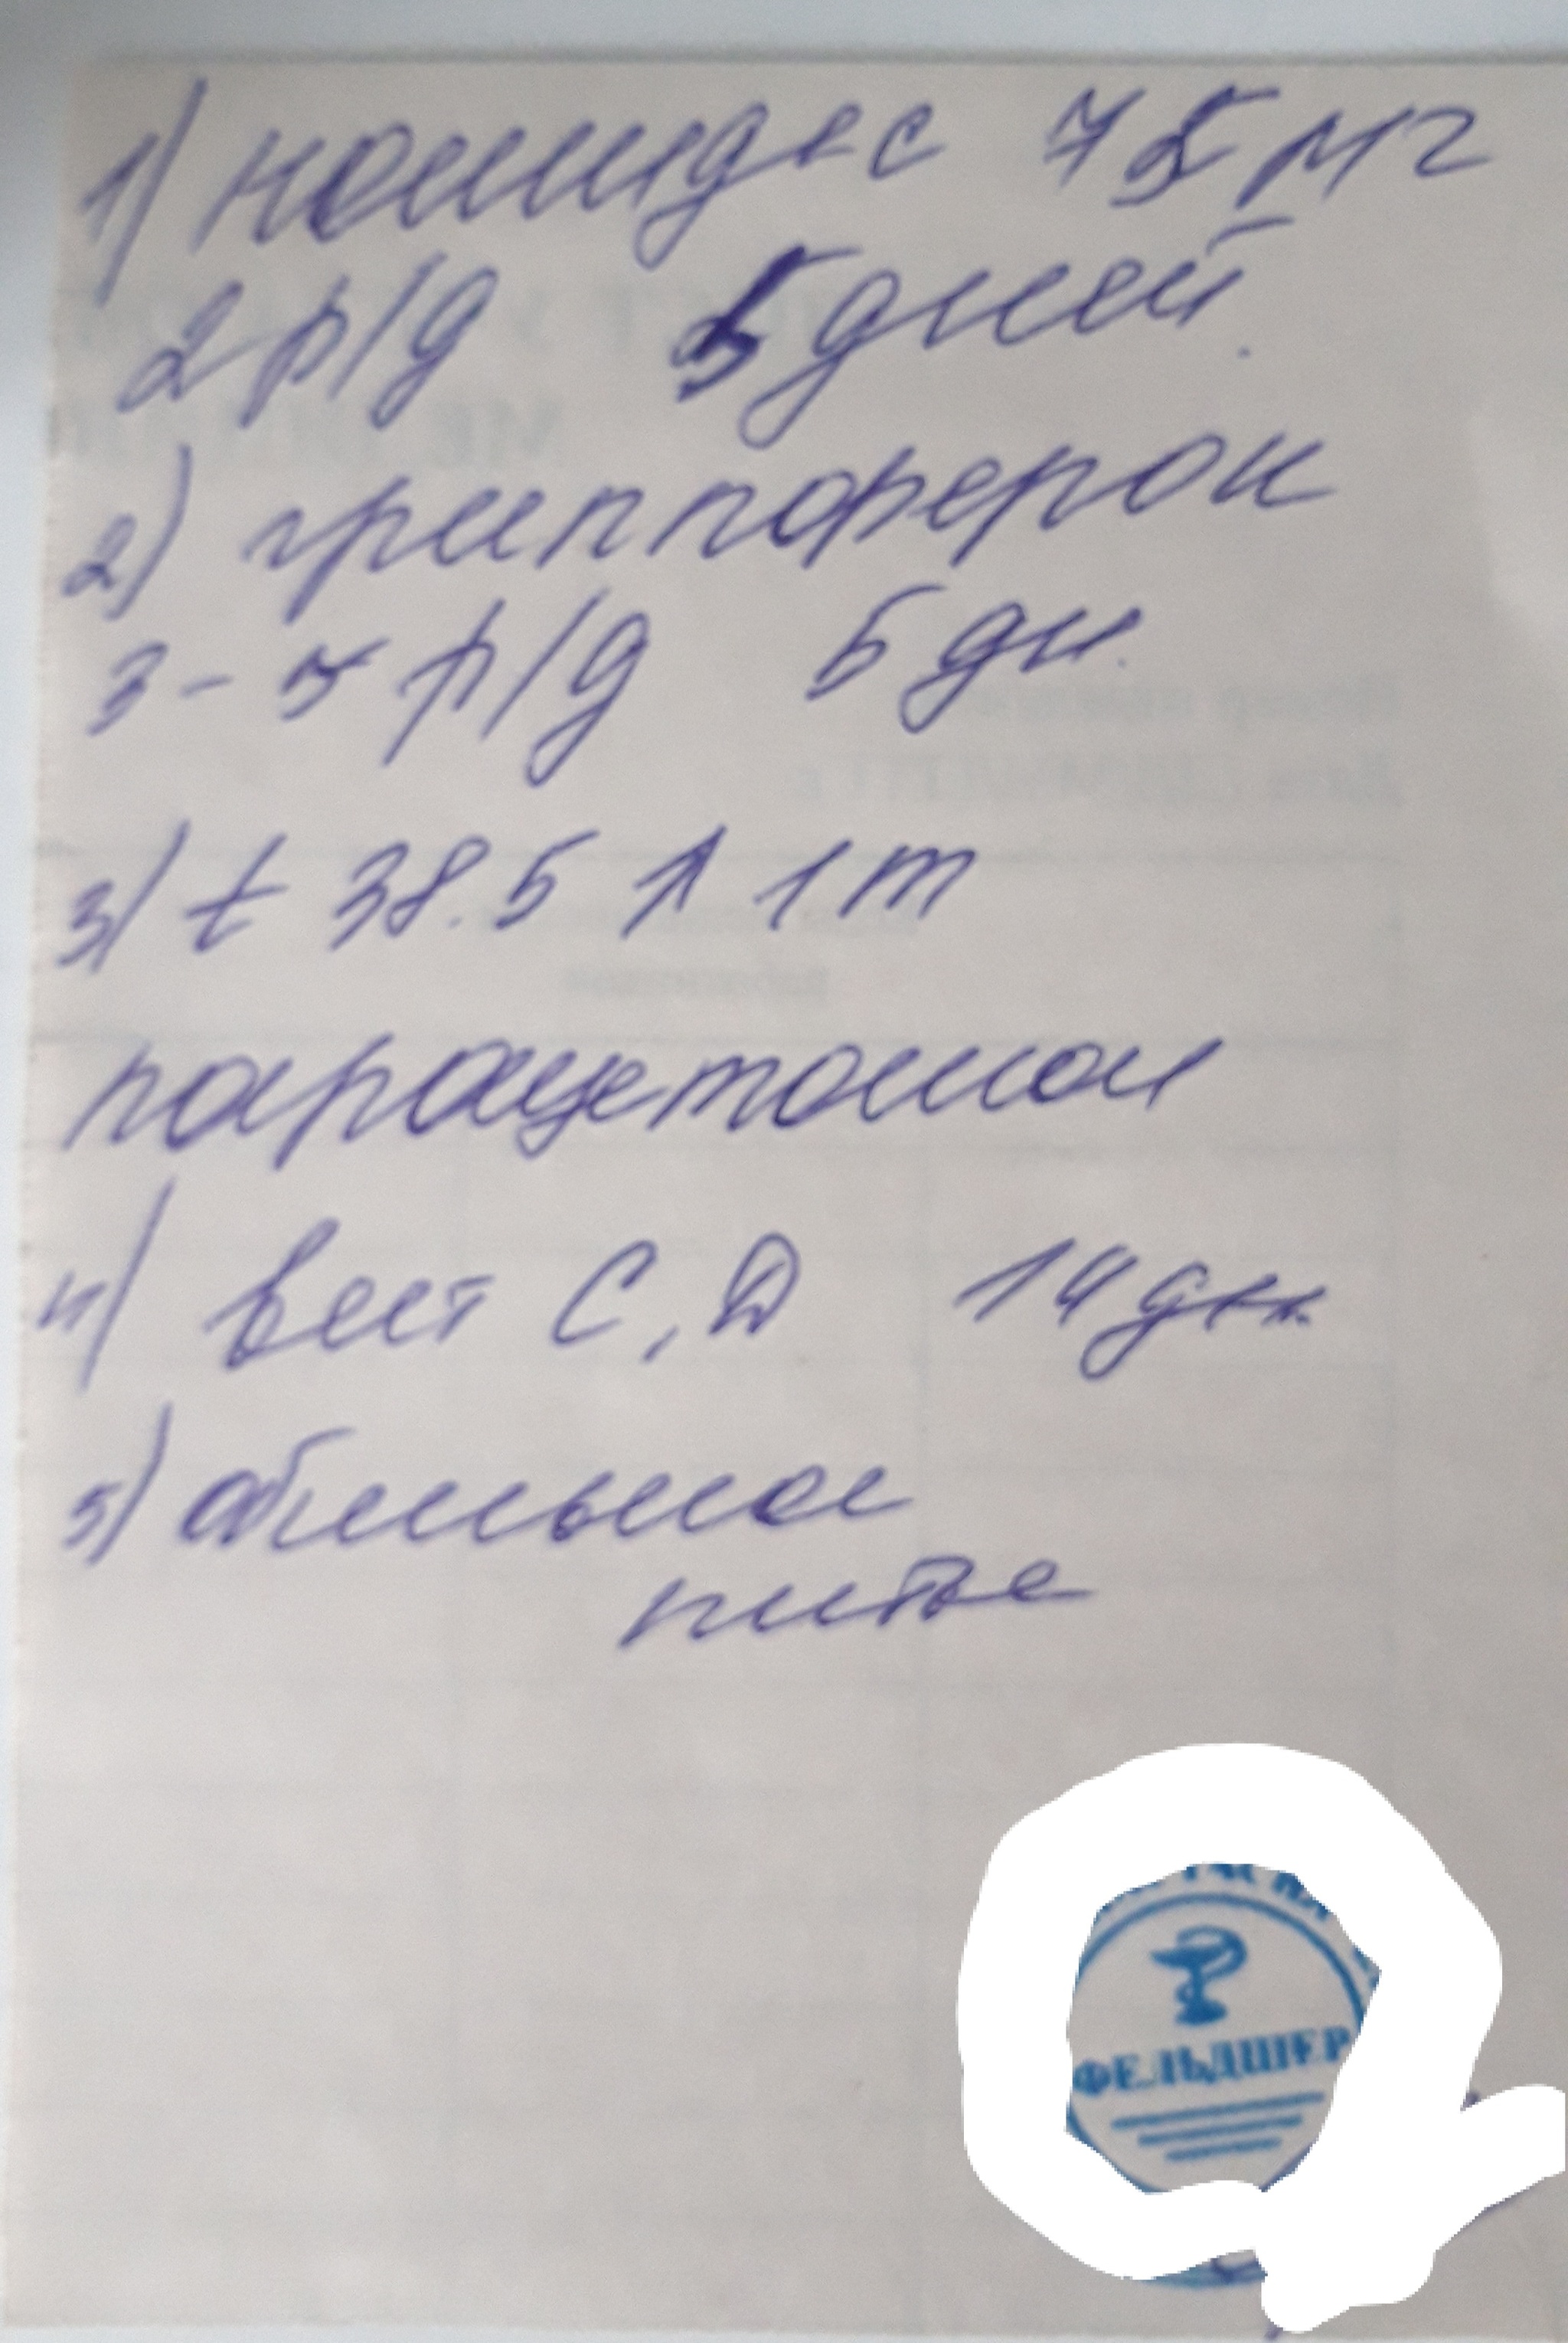 1) номидес 75 мг
2 р/д 5 дней.
2) гриппферон
3-5 р/д 5 дн.
3) t 38.5 ↑ 1 т
парацетамол
4) вит С, Д 14 дн.
5) обильное
питье
ФЕЛЬДШЕР